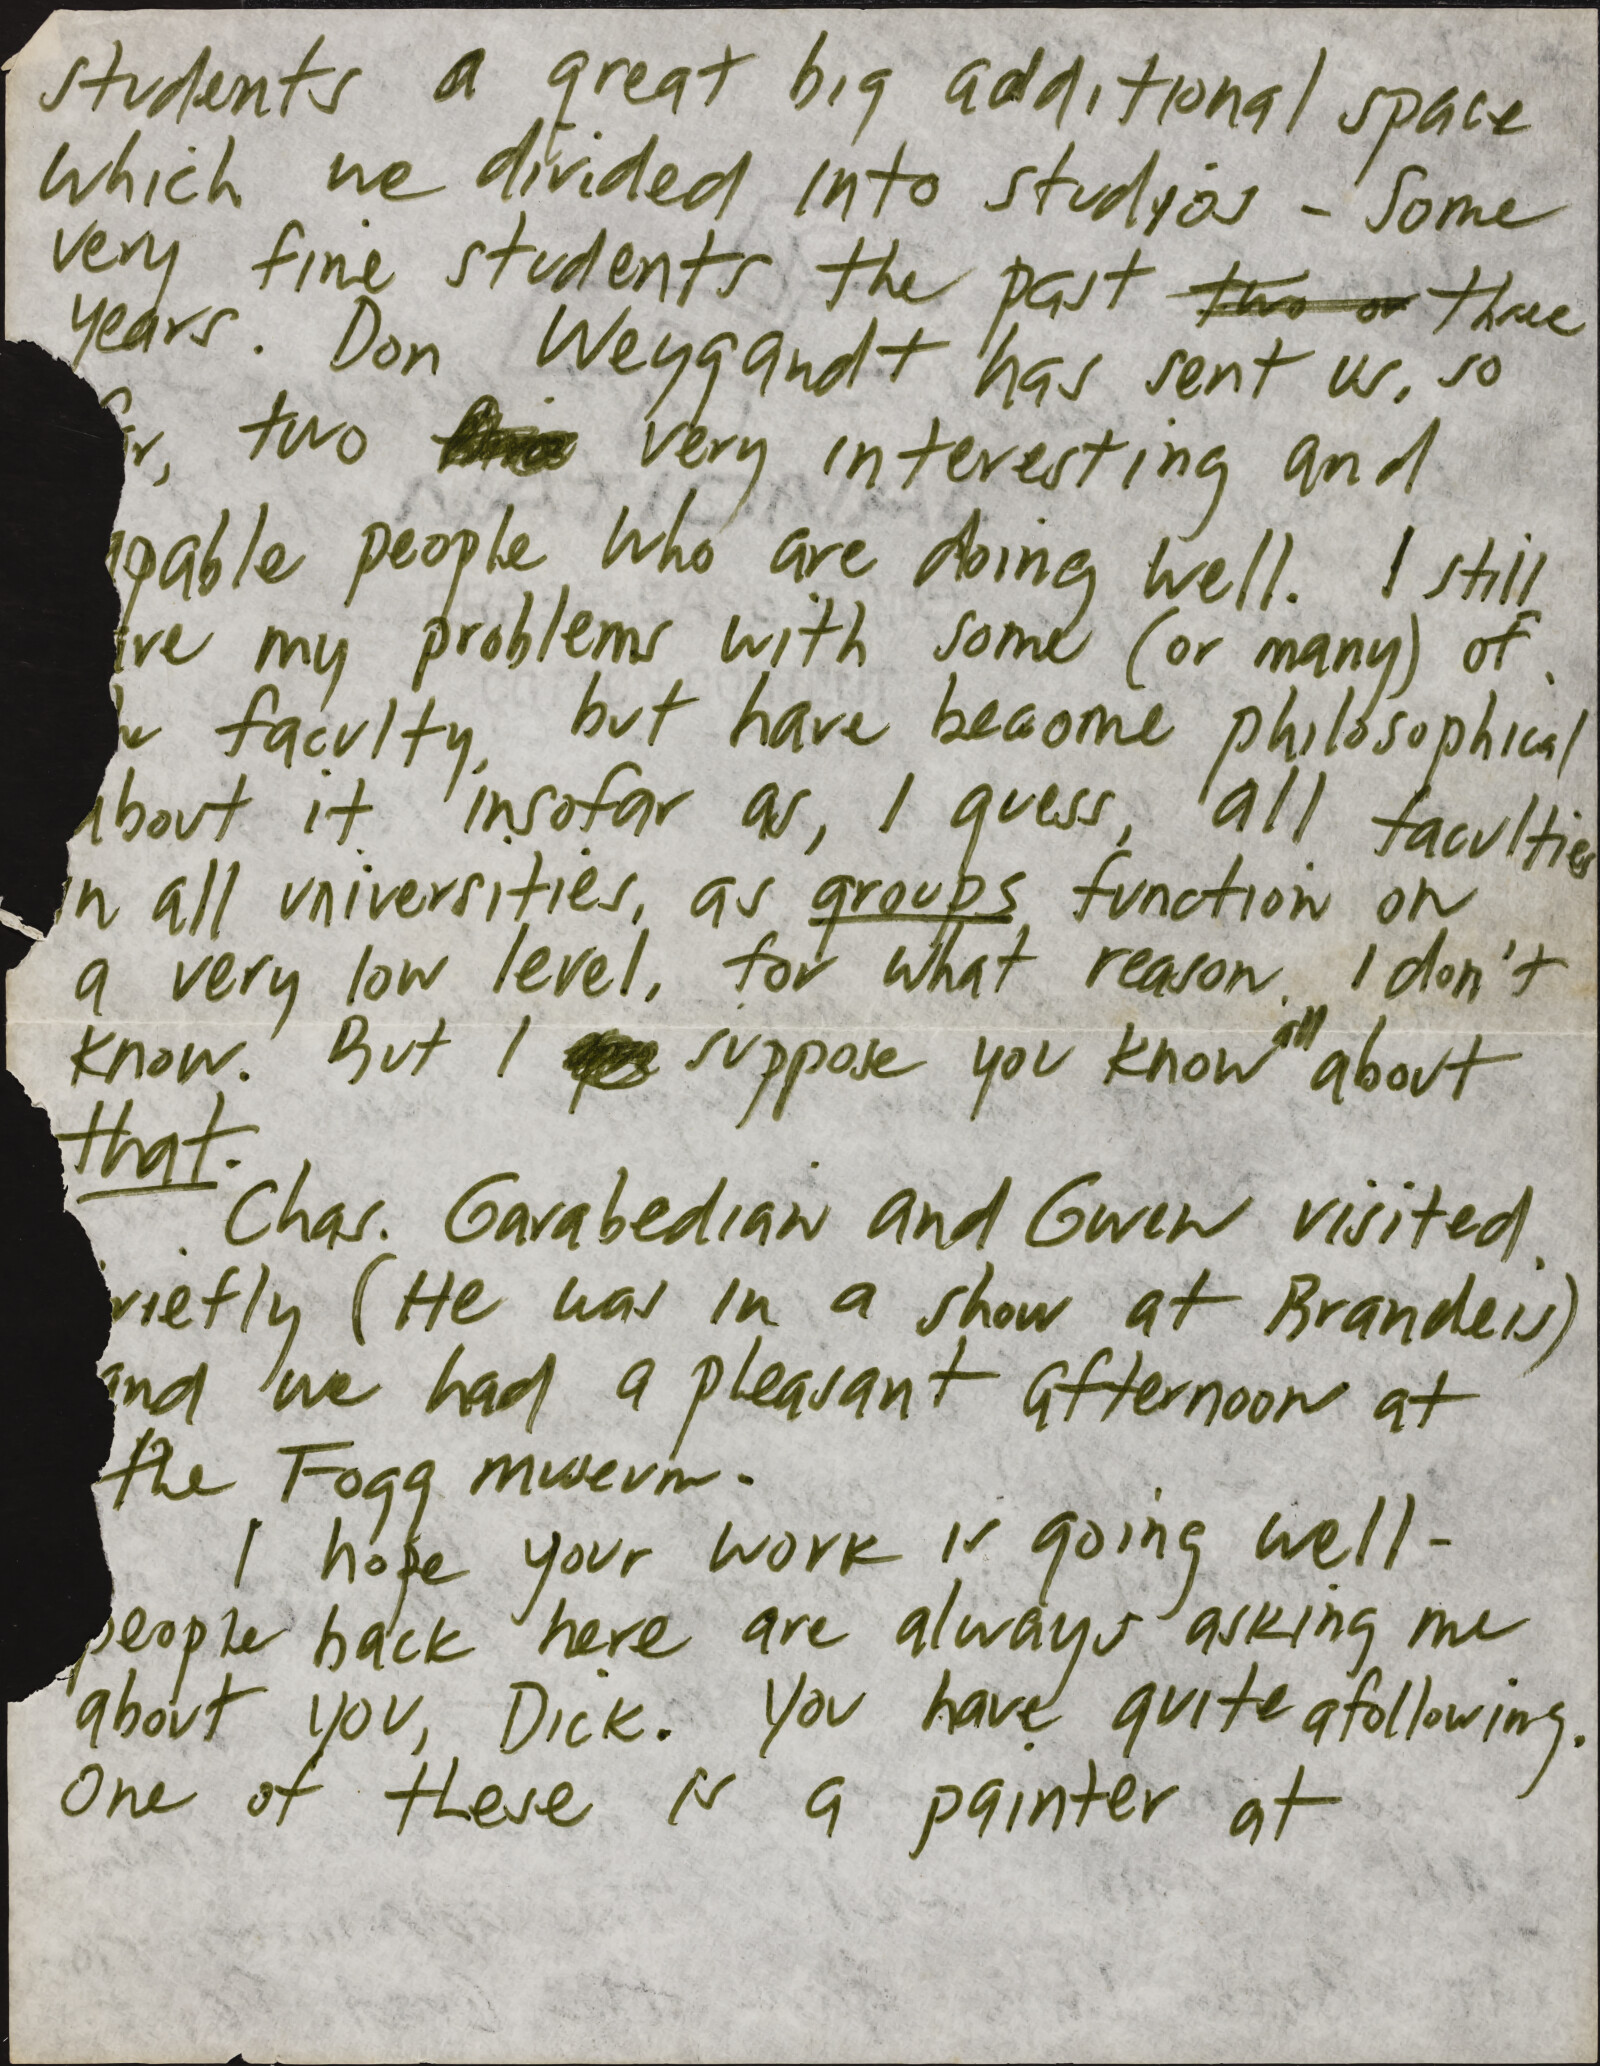 students a great big additional space
which we divided into studios - Some
very fine students the past two or three
years. Don Weygandt has sent us, so
ar, two very interesting and
apable people who are doing well. I still
ave my problems with some (or many) of
he faculty, but have become philosophical
about it insofar as, I guess, all faculties
in all universities, as groups function on
a very low level, for what reason, I don't
know. But I suppose you know all about
that.
Chas. Garabedian and Gwen visited
riefly (He was in a show at Brandeis)
and we had a pleasant afternoon at
the Fogg museum.
I hope your work is going well -
people back here are always asking me
about you, Dick. You have quite a following.
One of these is a painter at